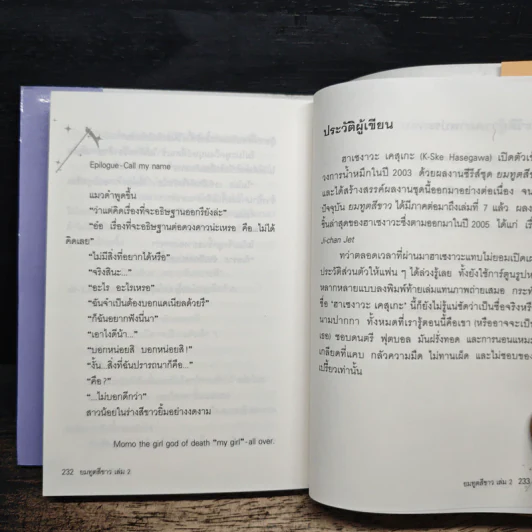 Epilogue-Call my name
แมวดำพูดขึ้น
“ว่าแต่คิดเรื่องที่จะอธิษฐานออกรึยังล่ะ”
“อ๋อ เรื่องที่จะอธิษฐานต่อดวงดาวน่ะเหรอ คือ...ไม่ได้
คิดเลย”
“ไม่มีสิ่งที่อยากได้หรือ”
“จริงสินะ...”
“อะไร อะไรเหรอ”
“ฉันจำเป็นต้องบอกแดเนียลด้วยรึ”
“ก็ฉันอยากฟังนี่นา”
“เอาไงดีน้า...”
“บอกหน่อยสิ บอกหน่อยสิ!”
“งั้น...สิ่งที่ฉันปรารถนาก็คือ...”
“คือ?”
“...ไม่บอกดีกว่า”
สาวน้อยในร่างสีขาวยิ้มอย่างงดงาม
Momo the girl god of death "my girl"-all over.
232 ยมทูตสีขาว เล่ม 2
ประวัติผู้เขียน
ฮาเซงาวะ เคสุเกะ (K-Ske Hasegawa) เปิดตัวใน
วงการน้ำหมึกในปี 2003 ด้วยผลงานซีรีส์ชุด ยมทูตสี
และได้สร้างสรรค์ผลงานชุดนี้ออกมาอย่างต่อเนื่อง จน
ปัจจุบัน ยมทูตสีขาว ได้มีภาคต่อมาถึงเล่มที่ 7 แล้ว ผลง
ชิ้นล่าสุดของฮาเซงาวะซึ่งตามออกมาในปี 2005 ได้แก่ เรื่
Ji-chan Jet
ทว่าตลอดเวลาที่ผ่านมาฮาเซงาวะแทบไม่ยอมเปิดเผ
ประวัติส่วนตัวให้แฟน ๆ ได้ล่วงรู้เลย ทั้งยังใช้การ์ตูนรูปห
หลากหลายแบบลงพิมพ์ท้ายเล่มแทนภาพถ่ายเสมอ กระทั่
ชื่อ ‘ฮาเซงาวะ เคสุเกะ’ นี้ก็ยังไม่รู้แน่ชัดว่าเป็นชื่อจริงหรื
นามปากกา ทั้งหมดที่เรารู้ตอนนี้คือเขา (หรืออาจจะเป็น
เธอ) ชอบดนตรี ฟุตบอล มันฝรั่งทอด และการนอนแหม
เกลียดที่แคบ กลัวความมืด ไม่ทานเผ็ด และไม่ชอบของ
เปรี้ยวเท่านั้น
ยมทูตสีขาว เล่ม 2 233